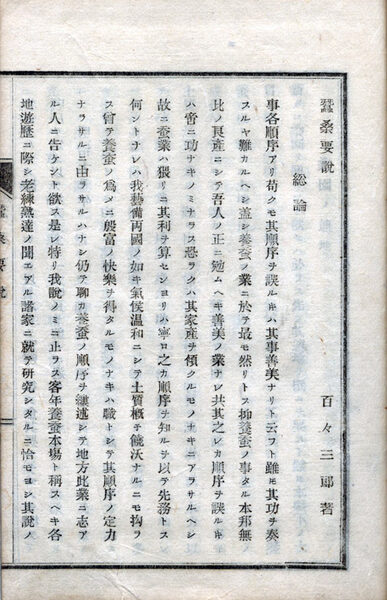 蠶桑要說
百々三郎著
總論
事各順序アリ苟クモ其順序ヲ誤ルキハ其事善美ナリト云フト雖モ其功ヲ奏
スルヤ難カルヘシ盖シ養蚕ノ業ニ於テ最モ然リトス抑養蚕ノ事タル本邦無
比ノ良產ニシテ吾人ノ正ニ勉ムヘキ善美ノ業ナレ共其之レカ順序ヲ誤ルキ
ハ啻ニ功ナキノミナラス恐ラクハ其家產ヲ傾クルモノナキニアラサルヘシ
故ニ蚕業ハ猥リニ其利ヲ算センヨリハ寧ロ之カ順序ヲ知ルヲ以テ先務トス
何ントナレハ我藝備兩國ノ如キ氣侯温和ニシテ土質概子饒沃ナルニモ拘ヲ
ス曾テ養蚕ノ爲メニ殷富ノ快樂ヲ得タルモノナキハ職トシテ其順序ノ定力
ナラサルニ由ラサルハナシ仍テ聊カ養蚕ノ順序ヲ縷述シテ地方此業ニ志ア
ル人ニ告ケント欲ス是レ特リ我說ノミニ止ラス客年養蚕本塲ト稱スヘキ各
地遊歷ニ際シ老練熟達ノ聞エアル諸家ニ就テ硏究シタルニ恰モヨシ其說ノ